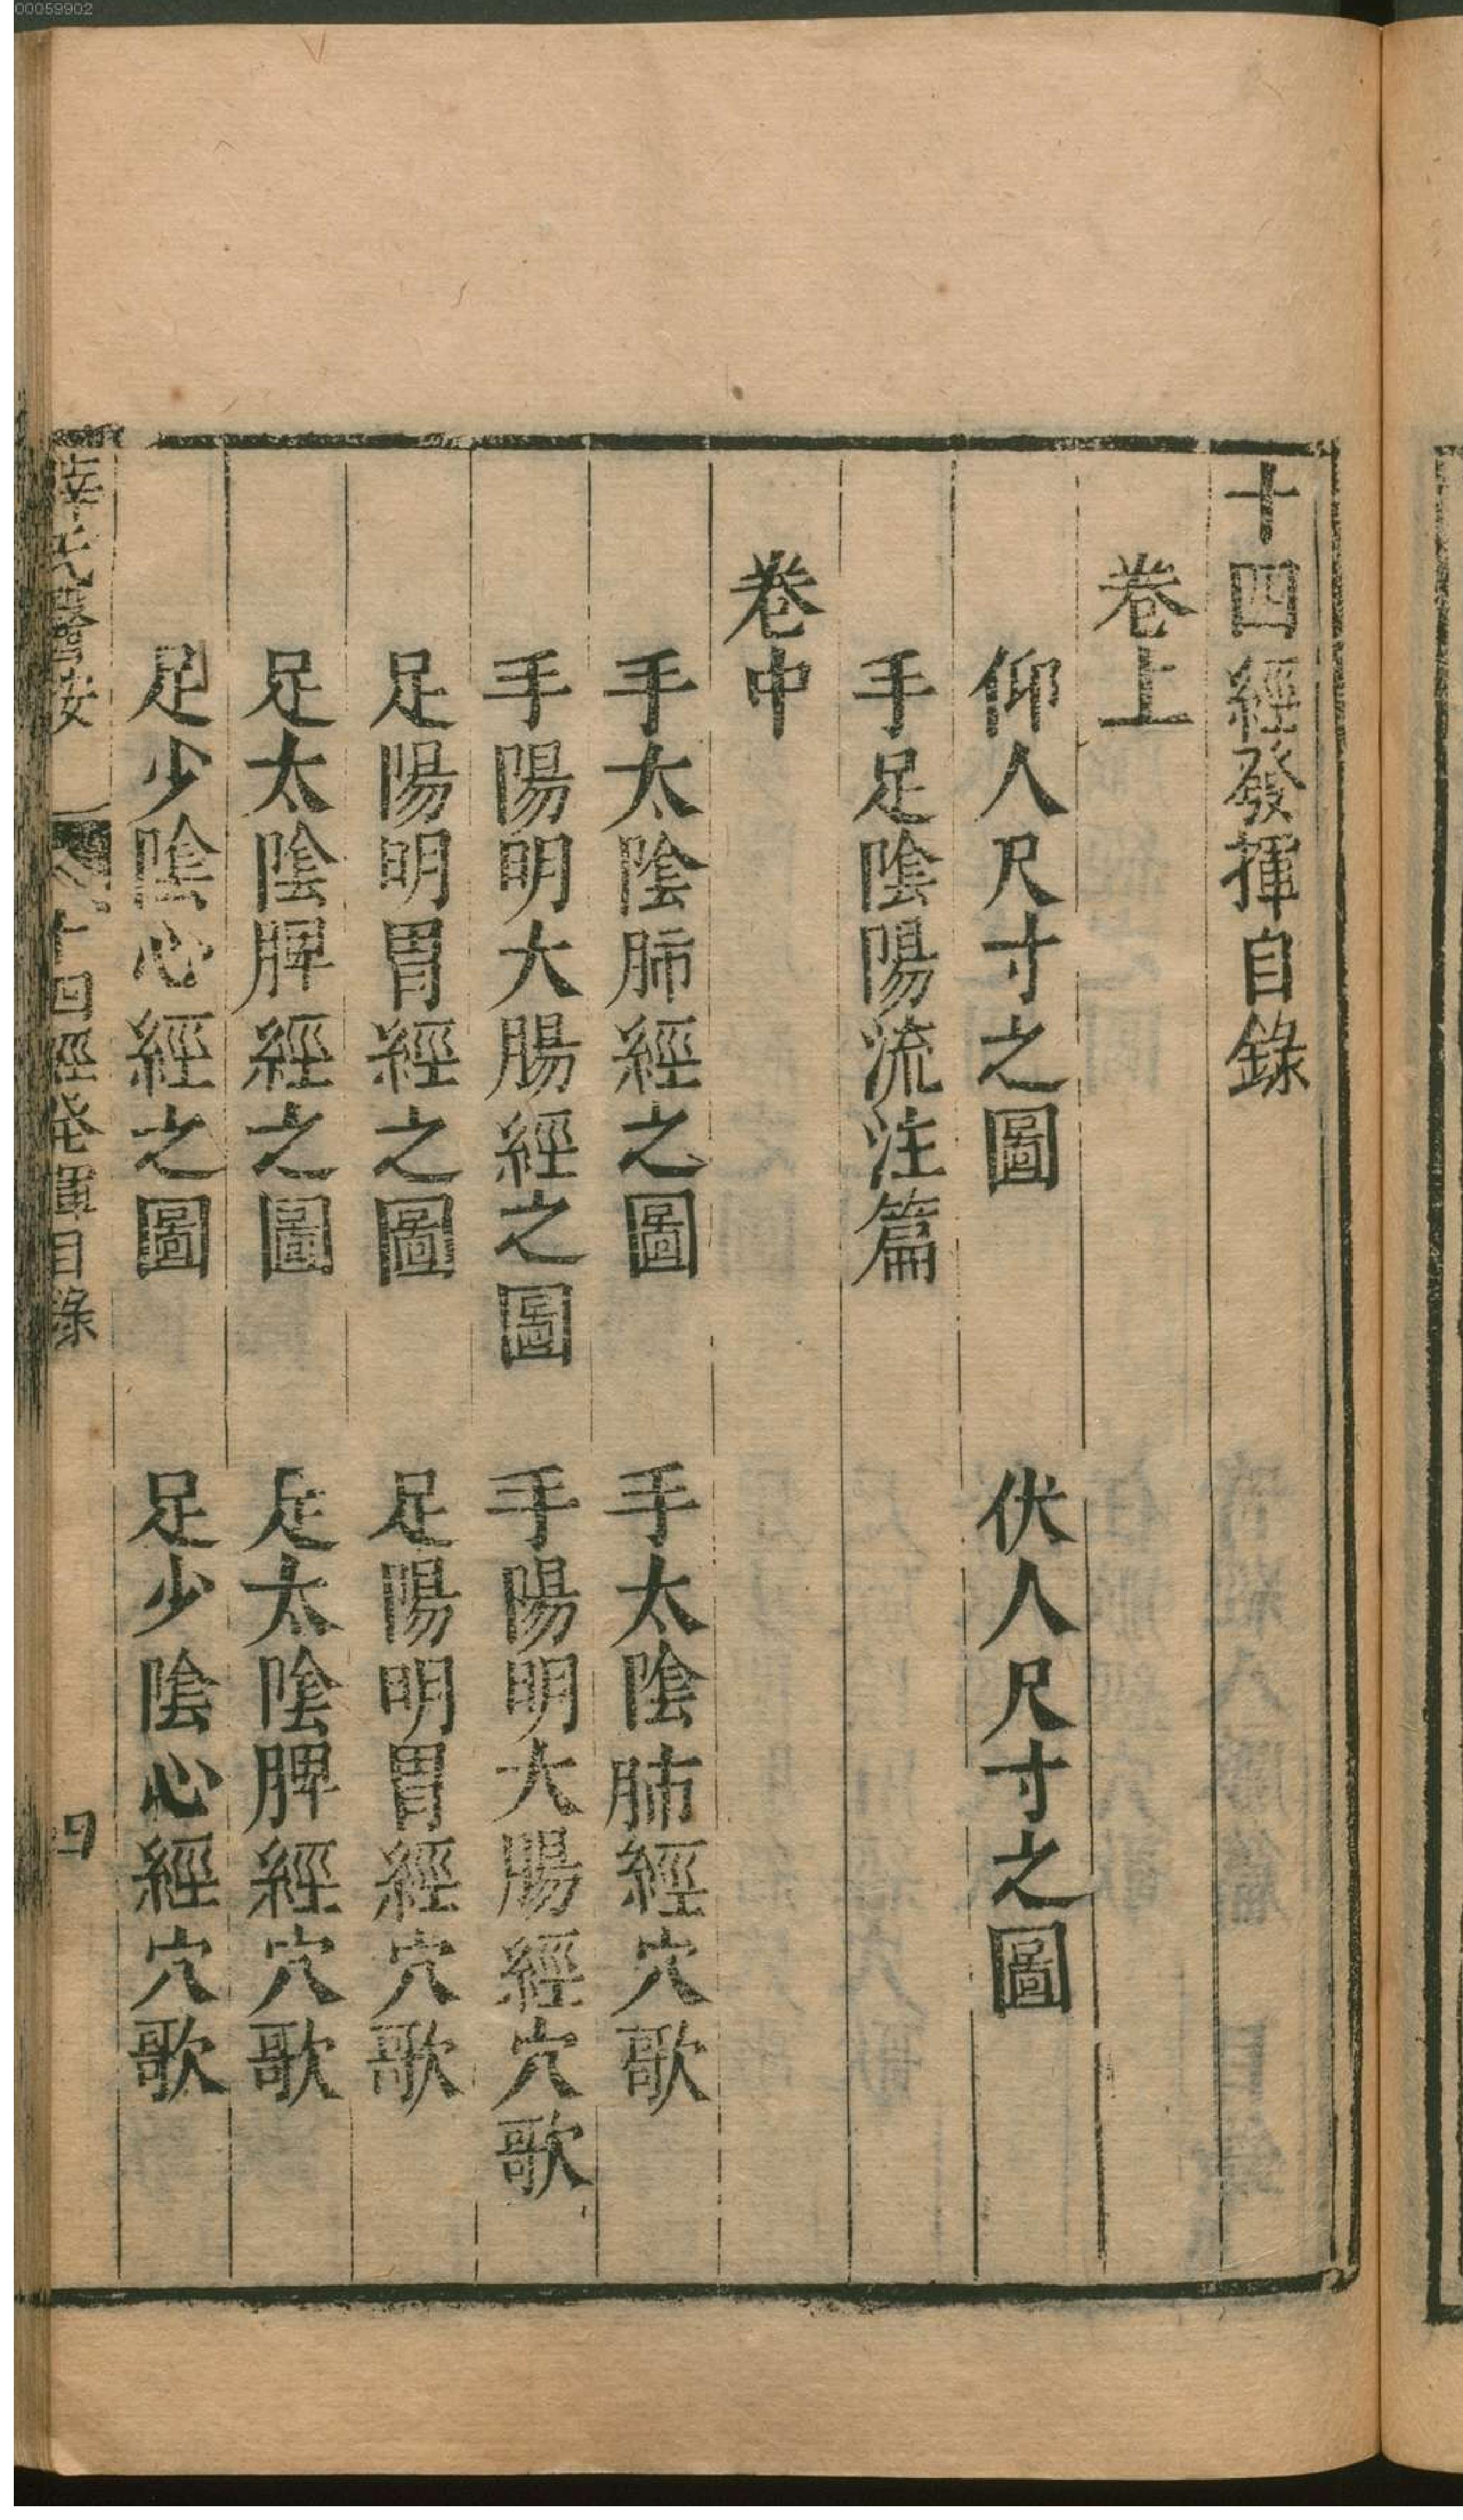 00059902
十四經發揮自錄
卷上
仰人尺寸之圖　伏人尺寸之圖
手足陰陽流注篇
卷中
手太陰肺經之圖　手太陰肺經穴歌
手陽明大腸經之圖　手陽明大腸經穴歌
足陽明胃經之圖　足陽明胃經穴歌
足太陰脾經之圖　足太陰脾經穴歌
足少陰心經之圖　足少陰心經穴歌
薛氏醫按　十四經發揮目錄　四